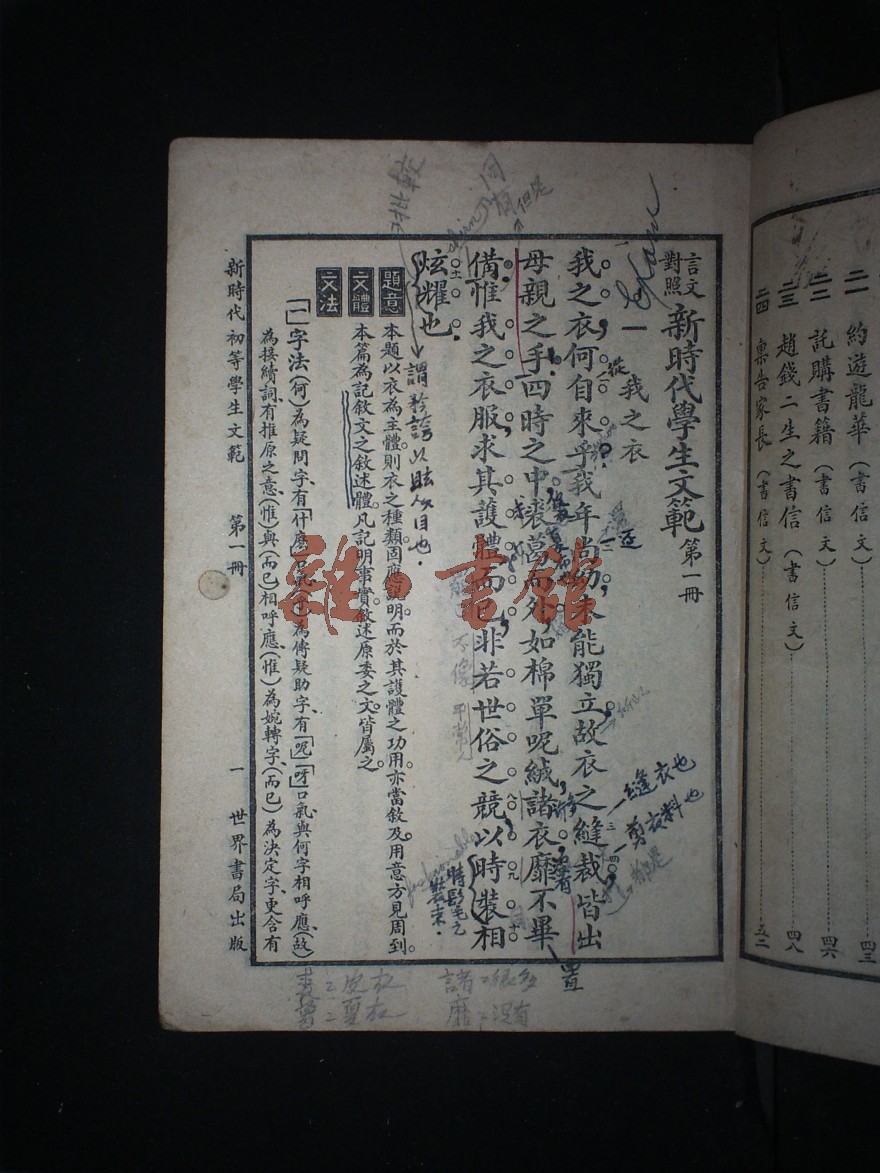 二一 約遊龍華（書信文）四三
二二 託購書籍（書信文）四六
二三 趙錢二生之書信（書信文）四八
二四 稟告家長（書信文）五二
言文對照 新時代學生文範 第一冊
一 我之衣
我之衣何自來乎我年尚幼未能獨立故衣之縫裁皆出
母親之手四時之中裘葛而外如棉單呢絨諸衣靡不畢
備惟我之衣服求其護體而已非若世俗之競以時裝相
炫耀也
題意 本題以衣為主體則衣之種類固應說明而於其護體之功用亦當敘及用意方見周到
文體 本篇為記敘文之敘述體凡記明事實敘述原委之文皆屬之
文法
﹝一﹞字法（何）為疑問字有「什麼」口氣（乎）為傳疑助字有「呢」「呀」口氣與何字相呼應（故）
為接續詞有推原之意（惟）與（而已）相呼應（惟）為婉轉字（而已）為決定字更含有
新時代初等學生文範 第一冊 一 世界書局出版
縫衣也
剪衣料也
從
但是
謂矜誇以眩人目也
時髦之裝束
置
不像平常人
諸＝很多
靡＝沒有
雜·書館